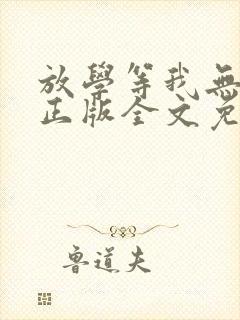 放學等我無
正版全文免
魯道夫